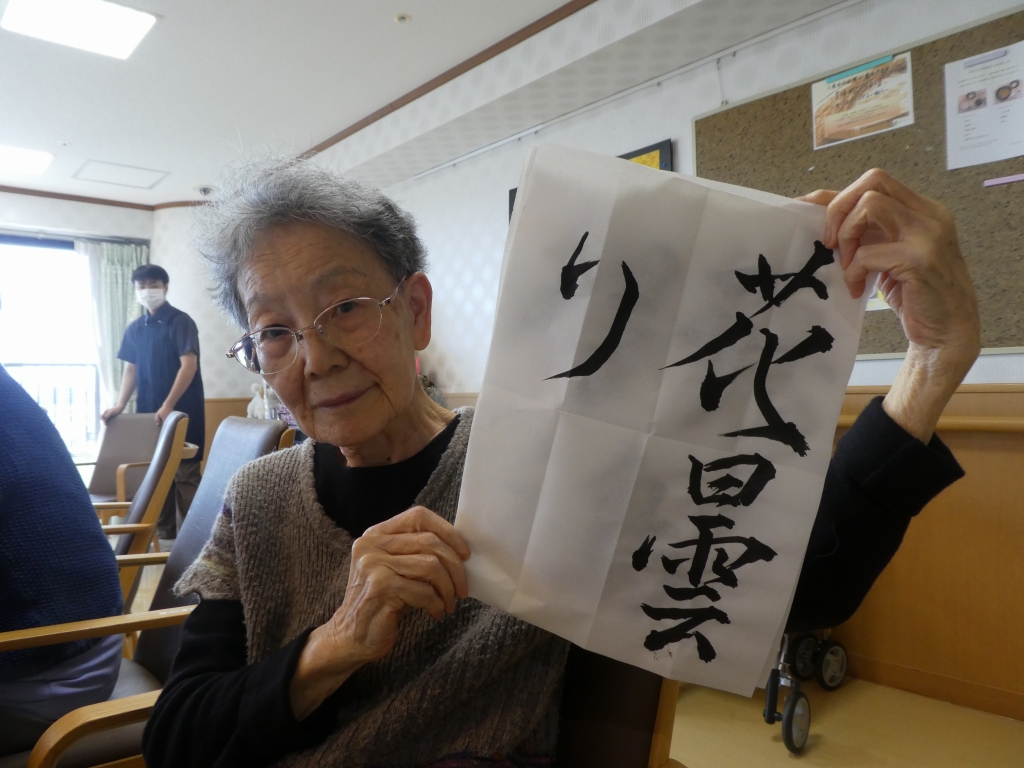 花曇
り